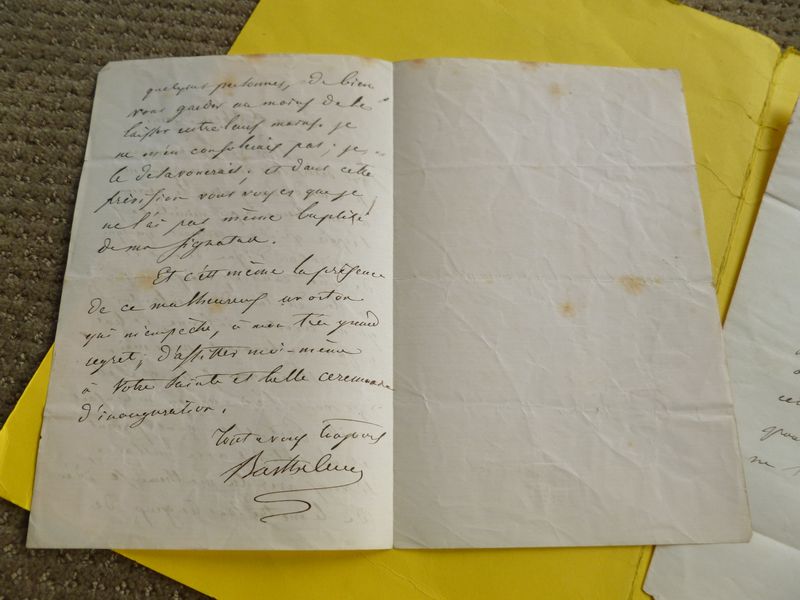 quelques personnes, de bien
vous garder au moins de le
laisser entre leurs mains. je
ne m'en consolerais pas; je
le desavouerais. et dans cette
prévision vous voyez que je
ne l'ai pas même baptisé
de ma signature.
Et c'est même la présence
de ce malheureux avorton
qui m'empêche, à mon très grand
regret, d'assister moi-même
à votre sainte et belle ceremonie
d'inauguration.
Tout a vous toujours
Barthelemy